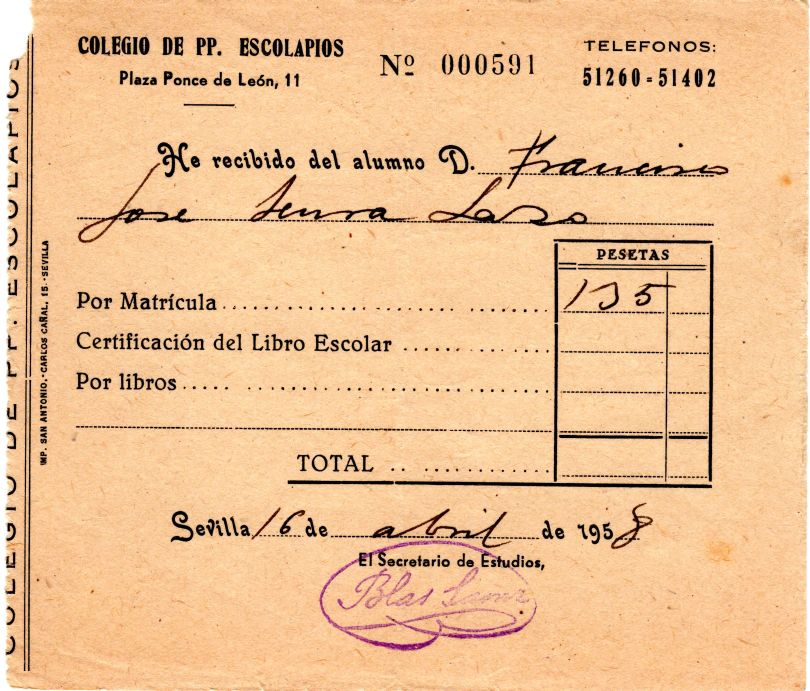 COLEGIO DE PP. ESCOLAPIOS
Plaza Ponce de León, 11
Nº 000591
TELEFONOS:
51260-51402
He recibido del alumno D. Francisco
Jose Serra Laso
PESETAS
Por Matrícula 135
Certificación del Libro Escolar
Por libros
TOTAL
Sevilla 16 de abril de 1958
El Secretario de Estudios,
Blas
COLEGIO DE PP. ESCOLAPIOS
IMP. SAN ANTONIO.-CARLOS CAÑAL, 15.-SEVILLA